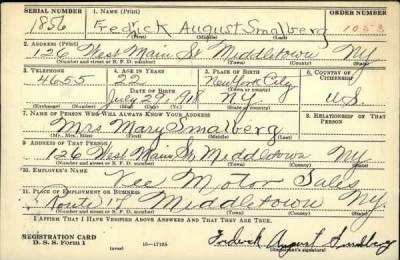 SERIAL NUMBER 1. NAME (Print) ORDER NUMBER
1856 Fredrick August Smalberg 1053
(First) (Middle) (Last)
2. ADDRESS (Print)
126 West Main St Middletown NY
(Number and street or R. F. D. number) (Town) (County) (State)
3. TELEPHONE 4. AGE IN YEARS 5. PLACE OF BIRTH 6. COUNTRY OF CITIZENSHIP
4655 22 New York City
DATE OF BIRTH (Town or county)
July 29 N.Y. U.S.
(Exchange) (Number) (Mo.) (Day) (Yr.) (State or country)
7. NAME OF PERSON WHO WILL ALWAYS KNOW YOUR ADDRESS 8. RELATIONSHIP OF THAT PERSON
Mrs Mary Smalberg
(Mr., Mrs., Miss) (First) (Middle) (Last)
9. ADDRESS OF THAT PERSON
126 West Main St Middletown NY
(Number and street or R. F. D. number) (Town) (County) (State)
10. EMPLOYER'S NAME
Motor Sales
11. PLACE OF EMPLOYMENT OR BUSINESS
Route 17 Middletown NY
(Number and street or R. F. D. number) (Town) (County) (State)
I AFFIRM THAT I HAVE VERIFIED ABOVE ANSWERS AND THAT THEY ARE TRUE.
REGISTRATION CARD
D. S. S. Form 1 (over) 16—17105
Fredrick August Smalberg
(Registrant's signature)